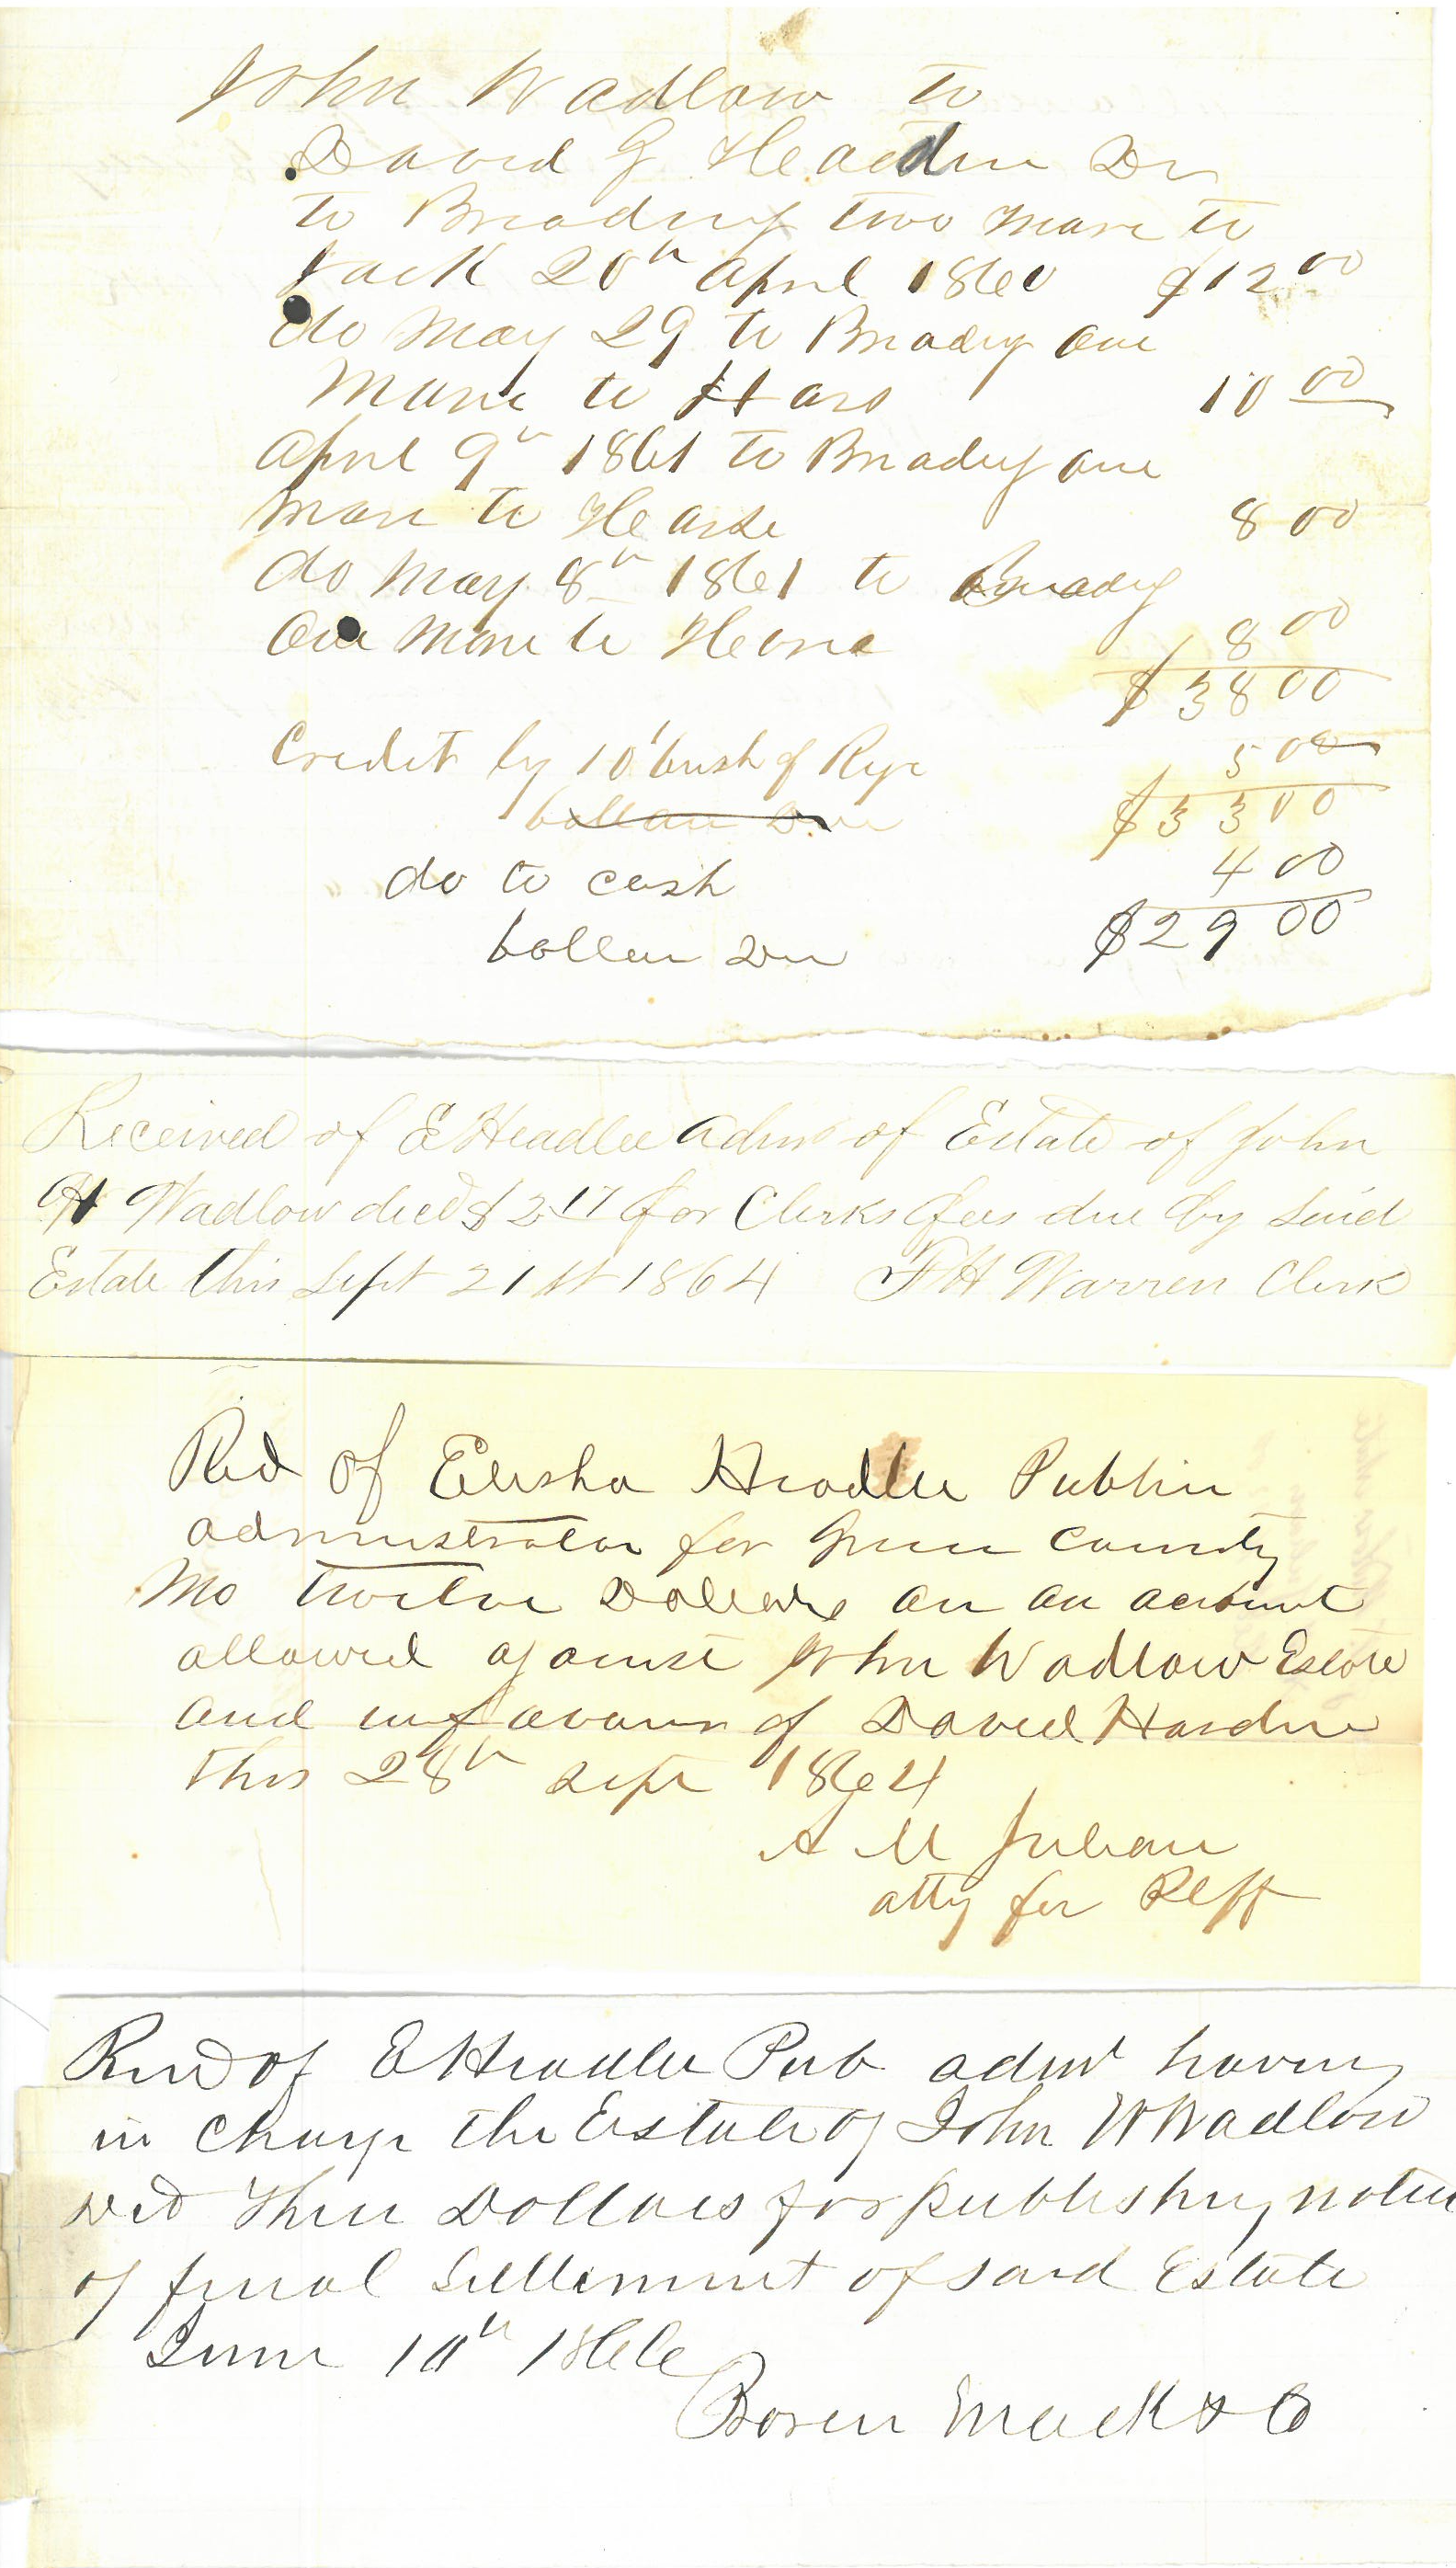 John Wadlow to
David G Headin Dr
to Breading two mare to
Jack 20th april 1860 $12 00
do May 29 to Breadig one
Mare to Hars 10 00
april 9th 1861 to Breadig one
mare to Hearse 8 00
do May 8th 1861 to Breadig
One Mare to Horse 8 00
$38 00
Credit by 10 bush of Rye 5 00
$33 00
do to cash 4 00
ballan Due $29 00
Received of E Headlee admr of Estate of John
H Wadlow decd $2 17 for Clerks fees due by said
Estate this Sept 21st 1864 F H Warren Clerk
Recd of Elisha Headlee Public
administrator for Green County
Mo twelve Dollars on an account
allowed against John Wadlow Estate
and in favour of David Hardin
this 28th Sept 1864
A M Julian
atty for Plff
Recd of E Headlee Pub admr having
in Charge the Estate of John W Wadlow
Decd Three Dollars for publishing notice
of final Settlement of said Estate
June 10th 1866
Boren Mack & Co